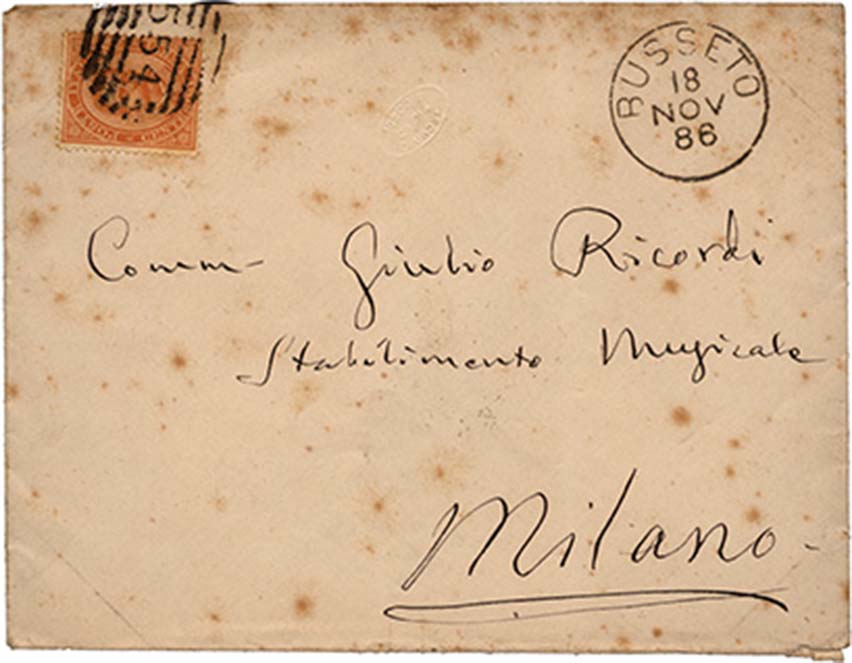 BUSSETO
18
NOV
86
Comm Giulio Ricordi
Stabilimento Musicale
Milano